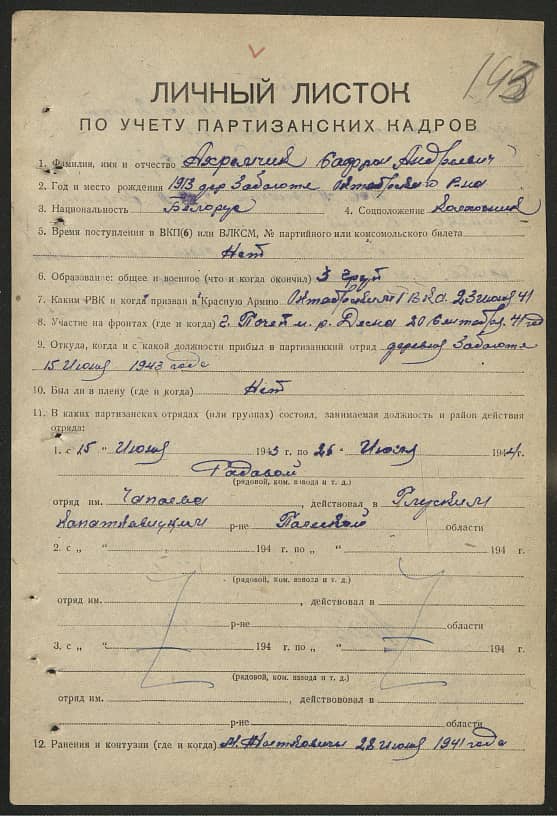 143
ЛИЧНЫЙ ЛИСТОК
ПО УЧЕТУ ПАРТИЗАНСКИХ КАДРОВ
1. Фамилия, имя и отчество Ахремчик Андреевич
2. Год и место рождения 1913 дер Заболоте Октябрьского р-на
3. Национальность Белорус 4. Соцположение колхозник
5. Время поступления в ВКП(б) или ВЛКСМ, № партийного или комсомольского билета
Нет
6. Образование: общее и военное (что и когда окончил) 3 груп
7. Каким РВК и когда призван в Красную Армию Октябрьским РВКа. 23 июня 41
8. Участие на фронтах (где и когда) г. Почеп р. Десна 20 сентября 41 год
9. Откуда, когда и с какой должности прибыл в партизанский отряд деревня Заболоте
15 июня 1943 года
10. Был ли в плену (где и когда) Нет
11. В каких партизанских отрядах (или группах) состоял, занимаемая должность и район действия
отряда:
1. с „ 15 “ Июня 1943 г. по „ 26 “ Июня 1944 г.
Радавой
(рядовой, ком. взвода и т. д.)
отряд им. Чапаева , действовал в Глуским
р-не Полеской области
2. с „ “ 194 г. по „ “ 194 г.
(рядовой, ком. взвода и т. д.)
отряд им. , действовал в
р-не области
3. с „ “ 194 г. по „ “ 194 г.
(рядовой, ком. взвода и т. д.)
отряд им. , действовал в
р-не области
12. Ранения и контузии (где и когда) м. 28 июня 1941 года